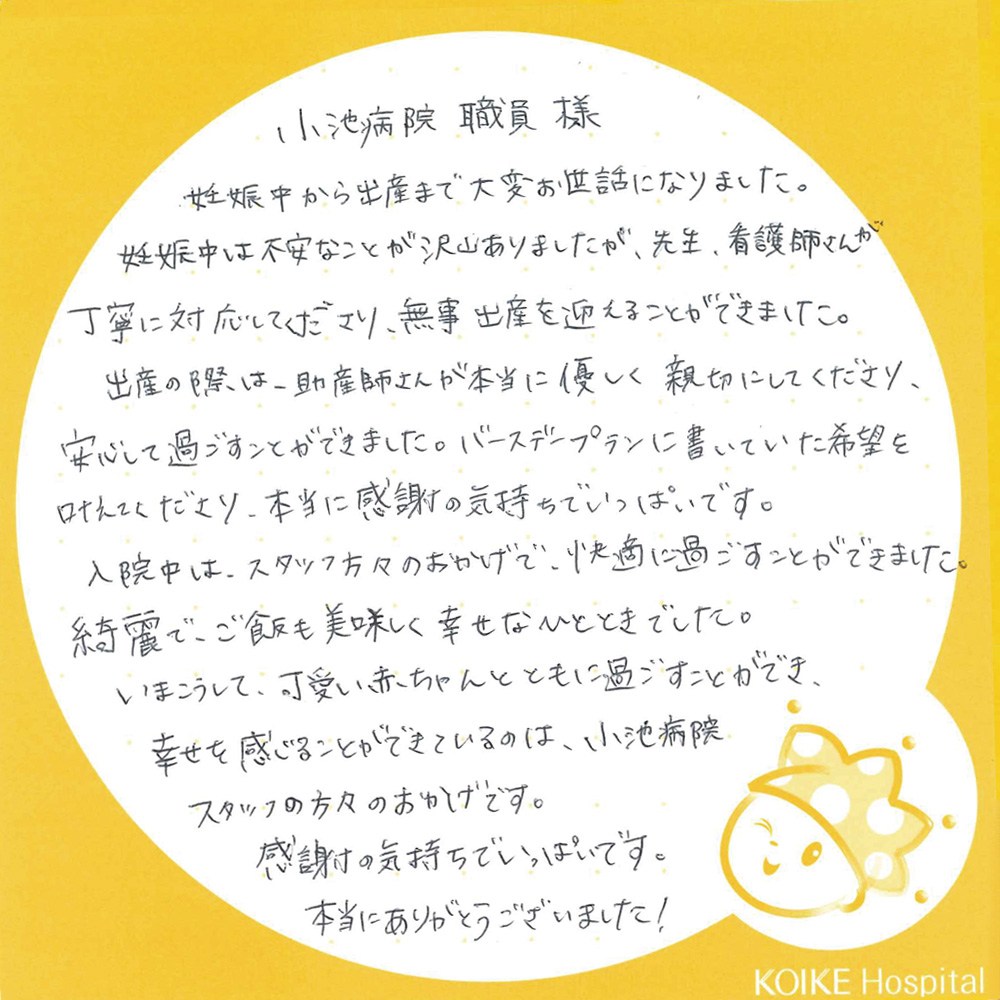 小池病院 職員 様
妊娠中から出産まで大変お世話になりました。
妊娠中は不安なことが沢山ありましたが、先生、看護師さんが
丁寧に対応してくださり、無事出産を迎えることができました。
出産の際は、助産師さんが本当に優しく親切にしてくださり、
安心して過ごすことができました。バースデープランに書いていた希望を
叶えてくださり、本当に感謝の気持ちでいっぱいです。
入院中は、スタッフ方々のおかげで、快適に過ごすことができました。
綺麗で、ご飯も美味しく幸せなひとときでした。
いまこうして、可愛い赤ちゃんとともに過ごすことができ、
幸せを感じることができているのは、小池病院
スタッフの方々のおかげです。
感謝の気持ちでいっぱいです。
本当にありがとうございました!
KOIKE Hospital